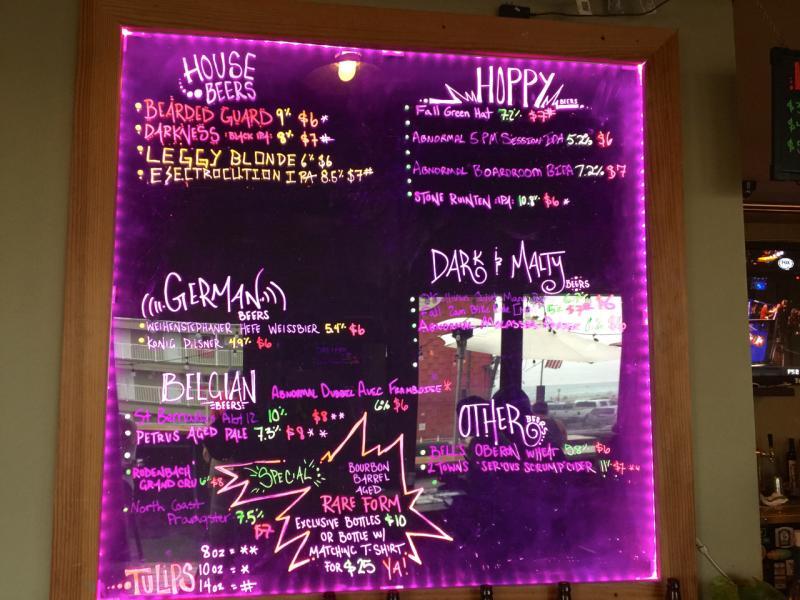 HOUSE
BEERS
BEARDED GUARD 9% $6*
DARKNESS (BLACK IPA) 8% $7#
LEGGY BLONDE 6% $6
ELECTROCUTION IPA 8.5% $7#
HOPPY
BEERS
Fall Green Hat 7.2% $7#
ABNORMAL 5PM SESSION IPA 5.2% $6
ABNORMAL BOARDROOM BIPA 7.2% $7
STONE RUINTEN :IPA: 10.8% $6 *
GERMAN
BEERS
WEIHENSTEPHANER HEFE WEISSBIER 5.4% $6
KÖNIG PILSNER 4.9% $6
DARK & MALTY
BEERS
ABNORMAL
$6
BELGIAN
BEERS
ABNORMAL DUBBEL AVEC FRAMBOISE *
6% $6
Abt 12 10% $8**
PETRUS AGED PALE 7.3% $8**
RODENBACH
GRAND CRU 6% $8
North Coast
Pranqster 7.5%
$7
OTHER
BEERS
BELLS OBERON WHEAT 5.8% $6
2 TOWNS "SERIOUS SCRUMP" CIDER 11% $7**
SPECIAL
BOURBON
BARREL
AGED
RARE FORM
EXCLUSIVE BOTTLES $10
OR BOTTLE W/
MATCHING T-SHIRT
FOR $25 YA!
TULIPS
8oz = **
10oz = *
14oz = #
FOX